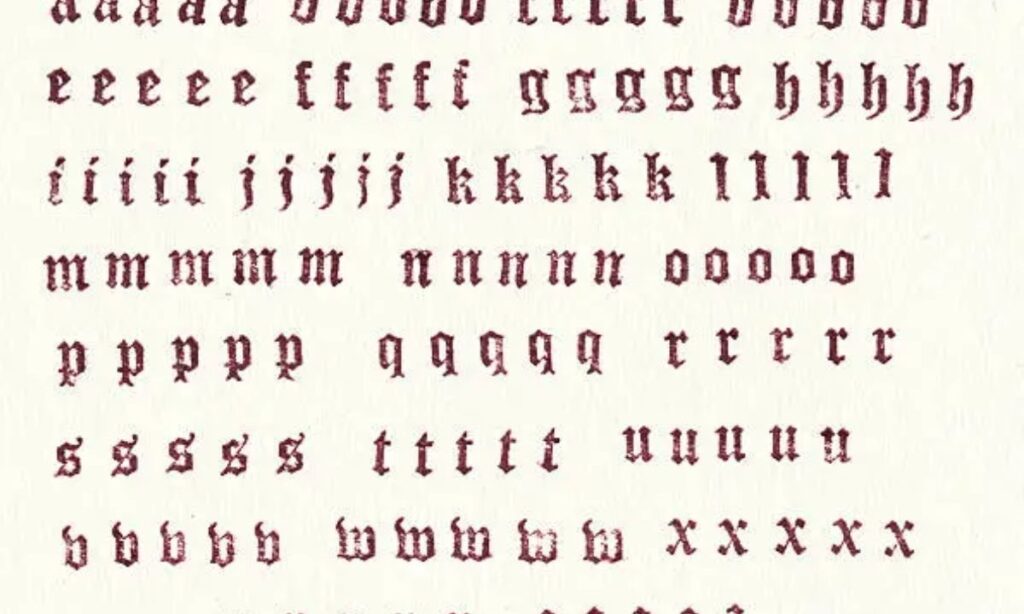 aaaaa bbbbb ccccc ddddd
eeeee fffff ggggg hhhhh
iiiii jjjjj kkkkk lllll
mmmmm nnnnn ooooo
ppppp qqqqq rrrrr
sssss ttttt uuuuu
vvvvv wwwww xxxxx